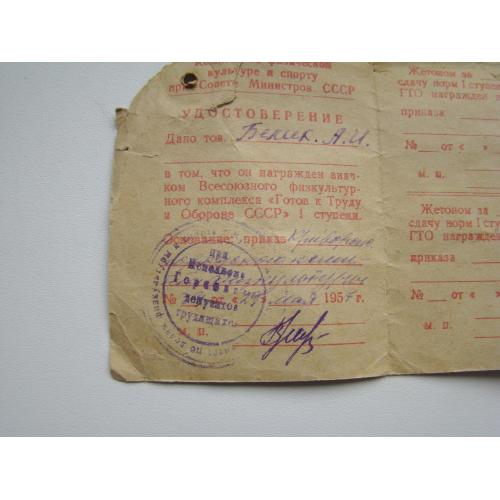 культуре и спорту
при Совете Министров СССР
УДОСТОВЕРЕНИЕ
Дано тов. Белик. А.И.
в том, что он награжден знач-
ком Всесоюзного физкультур-
ного комплекса «Готов к Труду
и Обороне СССР» I ступени.
Основание: приказ
№ от «29» мая 1957 г.
М. П.
при
Исполкоме
депутатов
трудящихся
Жетоном за
сдачу норм I ступе
ГТО награжден
приказа
№ от «
м. п.
Жетоном за
сдачу норм I ступе
ГТО награжден
приказа
№ от «
м. п.